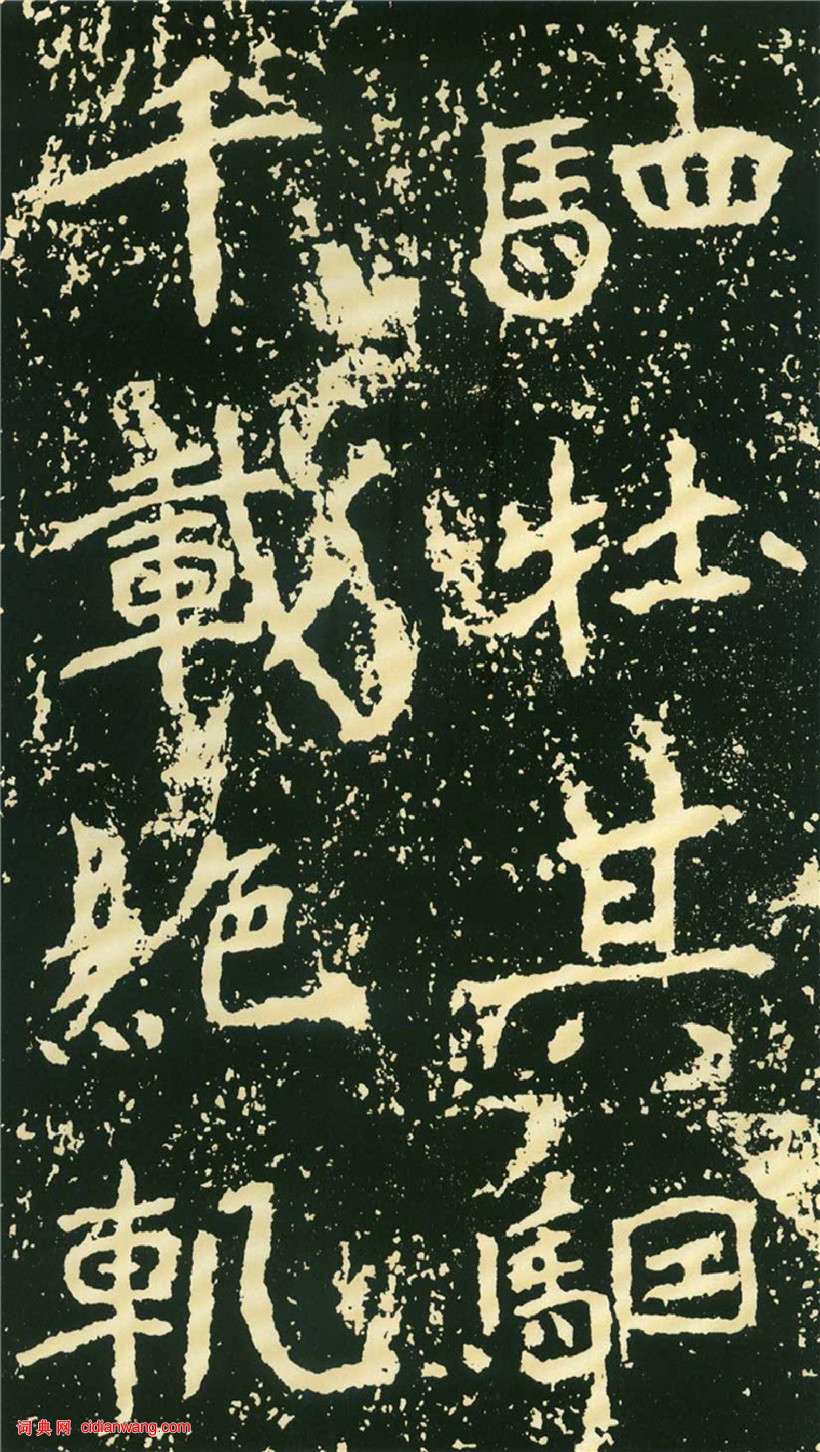 駟牡其駰
千載絶軌
词典网 cidianwang.com